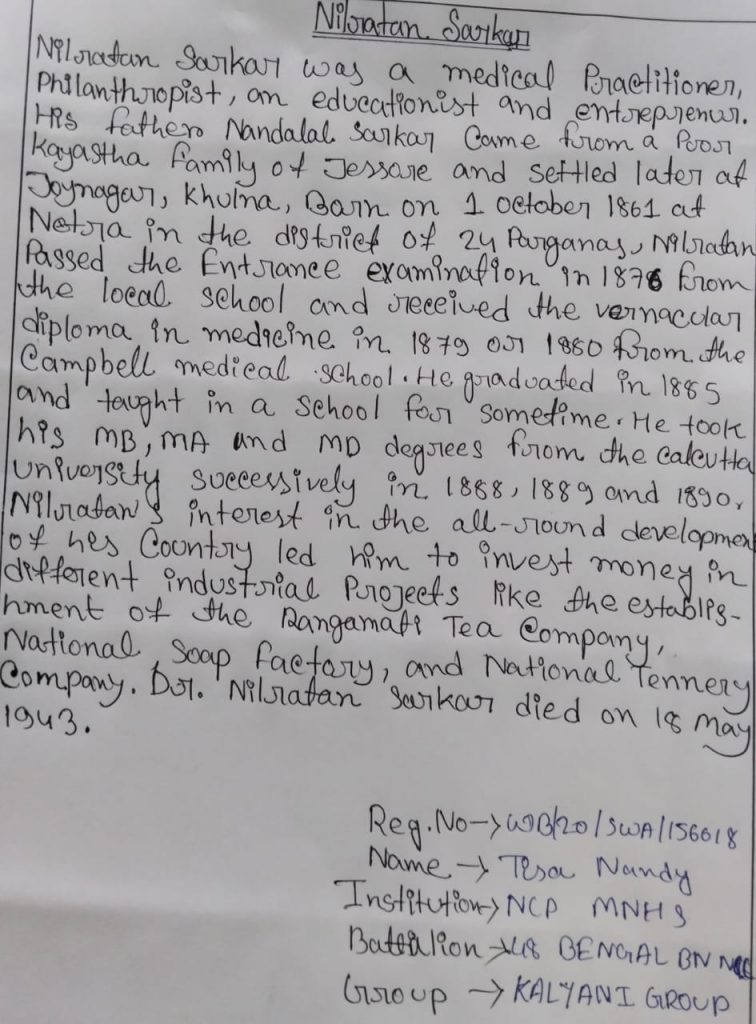 Nilratan Sarkar
Nilratan Sarkar was a medical Practitioner,
Philanthropist, an educationist and entreprenur.
His father Nandalal Sarkar Came from a Poor
Kayastha family of Jessare and settled later at
Joynagar, Khulna, Barn on 1 October 1861 at
Netra in the district of 24 Parganas, Nilratan
Passed the Entrance examination in 1876 from
the local school and received the vernacular
diploma in medicine in 1879 or 1880 from the
Campbell medical school. He graduated in 1885
and taught in a school for sometime. He took
his MB, MA and MD degrees from the calcutta
university successively in 1888, 1889 and 1890,
Nilratan's interest in the all-round developmen
of hes Country led him to invest money in
different industrial Projects like the establis-
hment of the Rangamati Tea Company,
National Soap factory, and National Tennery
Company. Dr. Nilratan Sarkar died on 18 May
1943.
Reg.No→WB/20/SWA/156618
Name → Nandy
Institution→NCP MNHS
Battalion→48 BENGAL BN NCC
Group → KALYANI GROUP